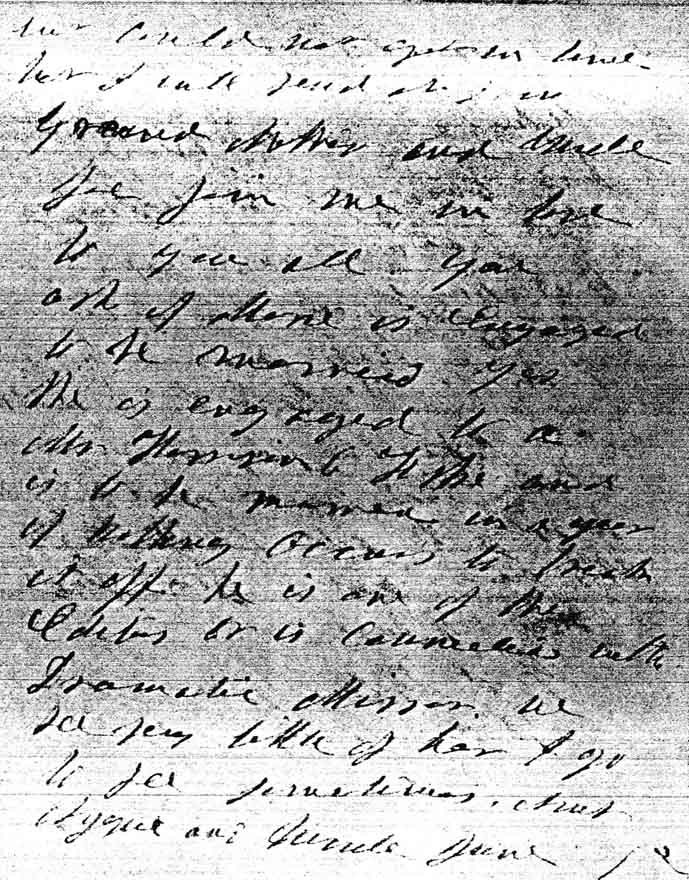 but could not get in time
but I will send it in
Grand Mother and Uncle
Joe join me in love
to you all You
ask if Marie is engaged
to be married Yes
She is engaged to a
Mr Harrison G Fiske and
is to be married in a year
if nothing occurs to break
it off he is one of the
Editors or is connected with
Dramatic Mirror. we
see very little of her I go
to see sometimes. Aunt
and Uncle June